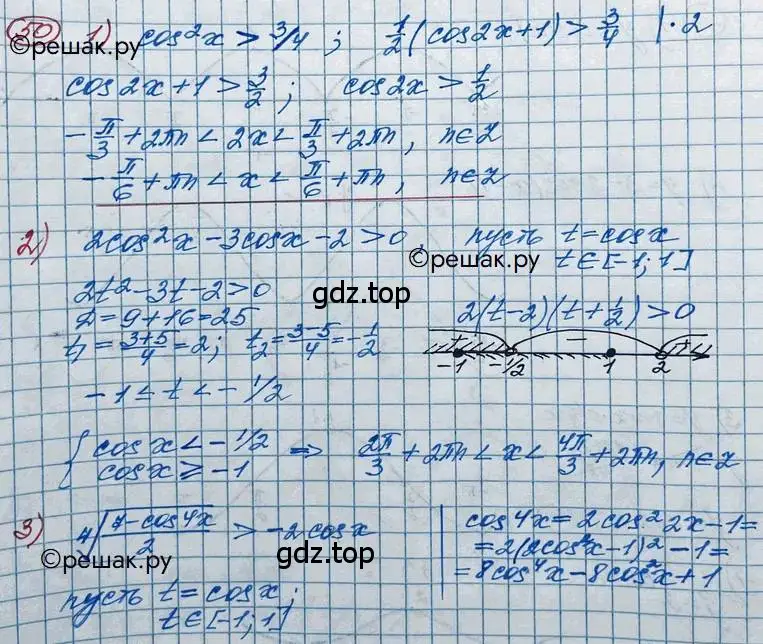 50 1) cos²x > 3/4 ; 1/2 (cos2x+1) > 3/4 | · 2
©решак.ру
cos2x+1 > 3/2 ; cos2x > 1/2
- π/3 + 2πn < 2x < π/3 + 2πn, n∈Z
- π/6 + πn < x < π/6 + πn, n∈Z
2) 2cos²x - 3cosx - 2 > 0, пусть t = cosx
©решак.ру t∈[-1; 1]
2t² - 3t - 2 > 0
gdz.top
D = 9 + 16 = 25 2(t-2)(t+1/2) > 0
t₁ = (3+5)/4 = 2; t₂ = (3-5)/4 = -1/2
+ - +
-1 -1/2 1 2
-1 ≤ t < -1/2
{ cosx < -1/2 ⇒ 2π/3 + 2πn < x < 4π/3 + 2πn, n∈Z
cosx ≥ -1
3) ⁴√((7-cos4x)/2) > -2cosx | cos4x = 2cos²2x - 1 =
gdz.top = 2(2cos²x-1)² - 1 =
©решак.ру = 8cos⁴x - 8cos²x + 1
пусть t = cosx;
t∈[-1; 1]